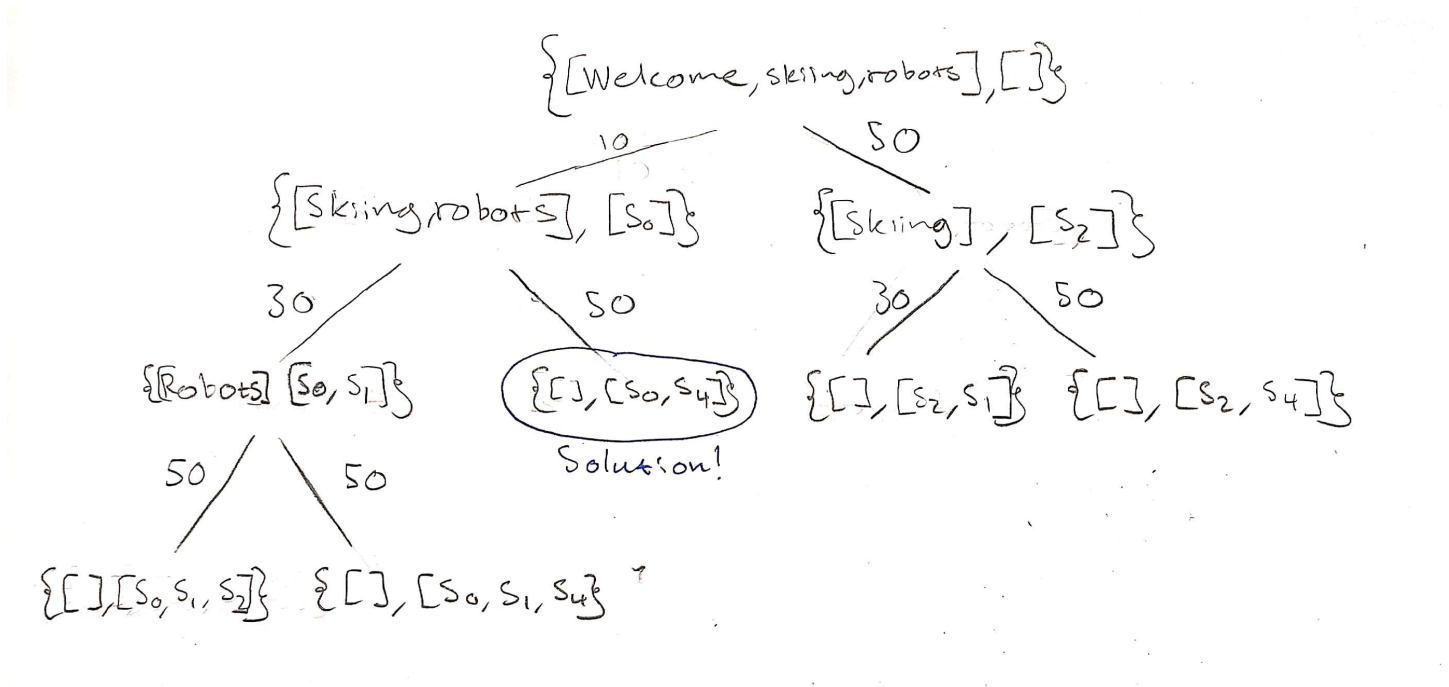 {[Welcome, skiing, robots], []}
10 50
{[Skiing, robots], [S₀]} {[Skiing], [S₂]}
30 50 30 50
{[Robots] [S₀, S₁]} {[], [S₀, S₄]} {[], [S₂, S₁]} {[], [S₂, S₄]}
Solution!
50 50
{[], [S₀, S₁, S₂]} {[], [S₀, S₁, S₄}